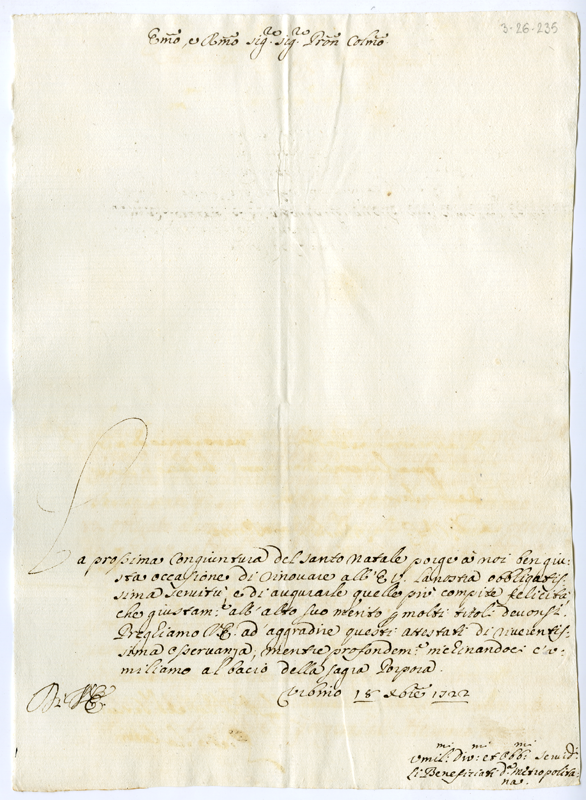 3-26-235
Emo, e Rmo Sig.re Sig.re Pron Colmo
La prossima Congiuntura del Santo Natale porge à noi ben giu-
sta occasione di rinovare all'E.V. la nostra obbligatis-
sima servitù, e di augurarle quelle più compite felicità
che giustam.e all'alto suo merito p molti titoli devonsi.
Preghiamo V.E. ad aggradire questi attestati di riverentis-
sima osservanza, mentre profondem.e inchinandoci c'u-
miliamo al bacio della Sagra Porpora.
Di V.E.
18 Xbre 1722
Umil.mi Div.mi et Obb.mi Servid.i
li Beneficiati d.a Metropolita-
na.